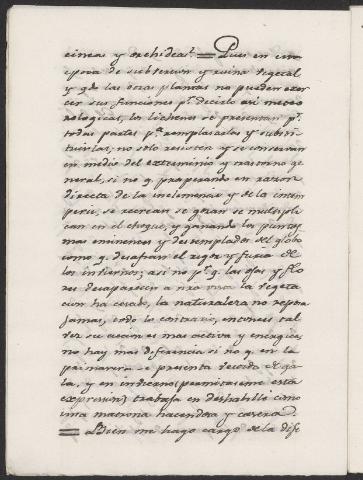 cineas y orchideas. = Pues en una
epoca de subtersion y ruina vegetal
y q.do las otras plantas no pueden exer
cer sus funciones p.r decirlo asi meteo
rologicas, los lichenes se presentan p.r
todas partes p.a remplasarlas y substi
tuirlas; no solo resisten y se conservan
en medio del exterminio y trastorno ge
neral, si no q. prosperando en razon
directa de la inclemencia y de la intem
perie, se recrean se gozan se multipli
can en el choque, y ganando los puntos
mas eminentes y destemplados del globo
como q. desafian el rigor y furia de
los inviernos; asi no p.r q. las ojas y flo
res desaparecen a nra vista la vegeta
cion ha cesado, la naturaleza no reposa
jamas, todo lo contrario, entonces tal
vez su accion es mas activa y energica,
no hay mas diferencia si no q. en la
primavera se presenta vestida de ga
la, y en invierno (permitaseme esta
expresion) trabaja en deshabillé como
una matrona hacendosa y casera.
= Bien me hago cargo de la dife